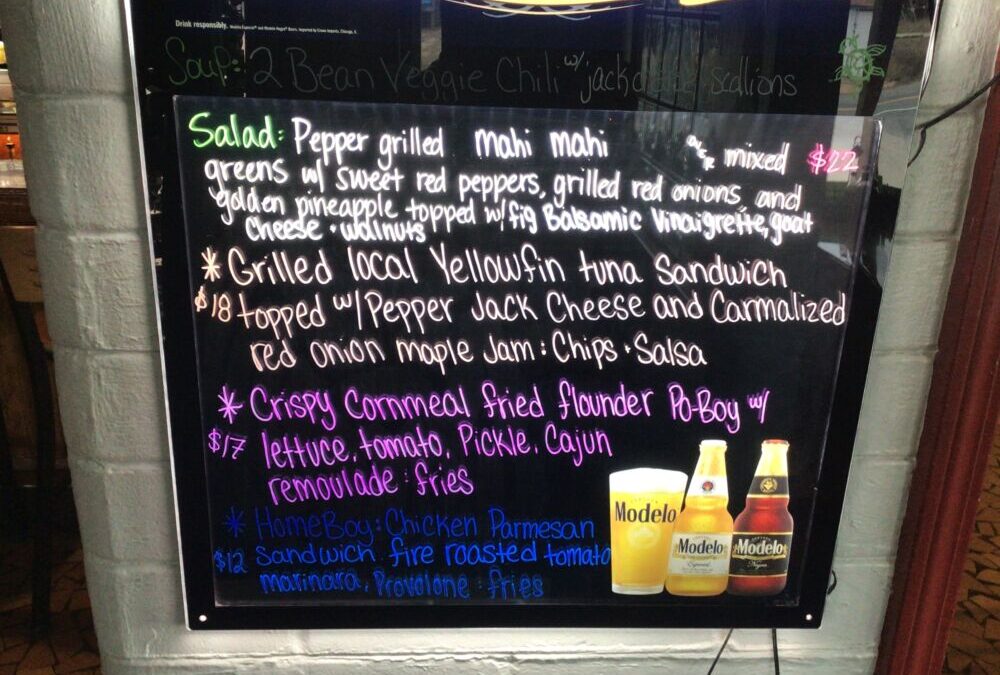 Drink responsibly.
Soup: 2 Bean Veggie Chili w/ jack cheese scallions
Salad: Pepper grilled mahi mahi over mixed $22
greens w/ sweet red peppers, grilled red onions, and
golden pineapple topped w/ fig Balsamic Vinaigrette, goat
Cheese + walnuts
* Grilled local Yellowfin tuna Sandwich
$18 topped w/ Pepper Jack Cheese and Carmalized
red onion maple Jam : Chips + Salsa
* Crispy Cornmeal fried flounder Po-Boy w/
$17 lettuce, tomato, Pickle, Cajun
remoulade : fries
* HomeBoy: Chicken Parmesan
$12 Sandwich. fire roasted tomato
marinara, Provolone : fries
Modelo
Modelo
Modelo
Especial
Negra